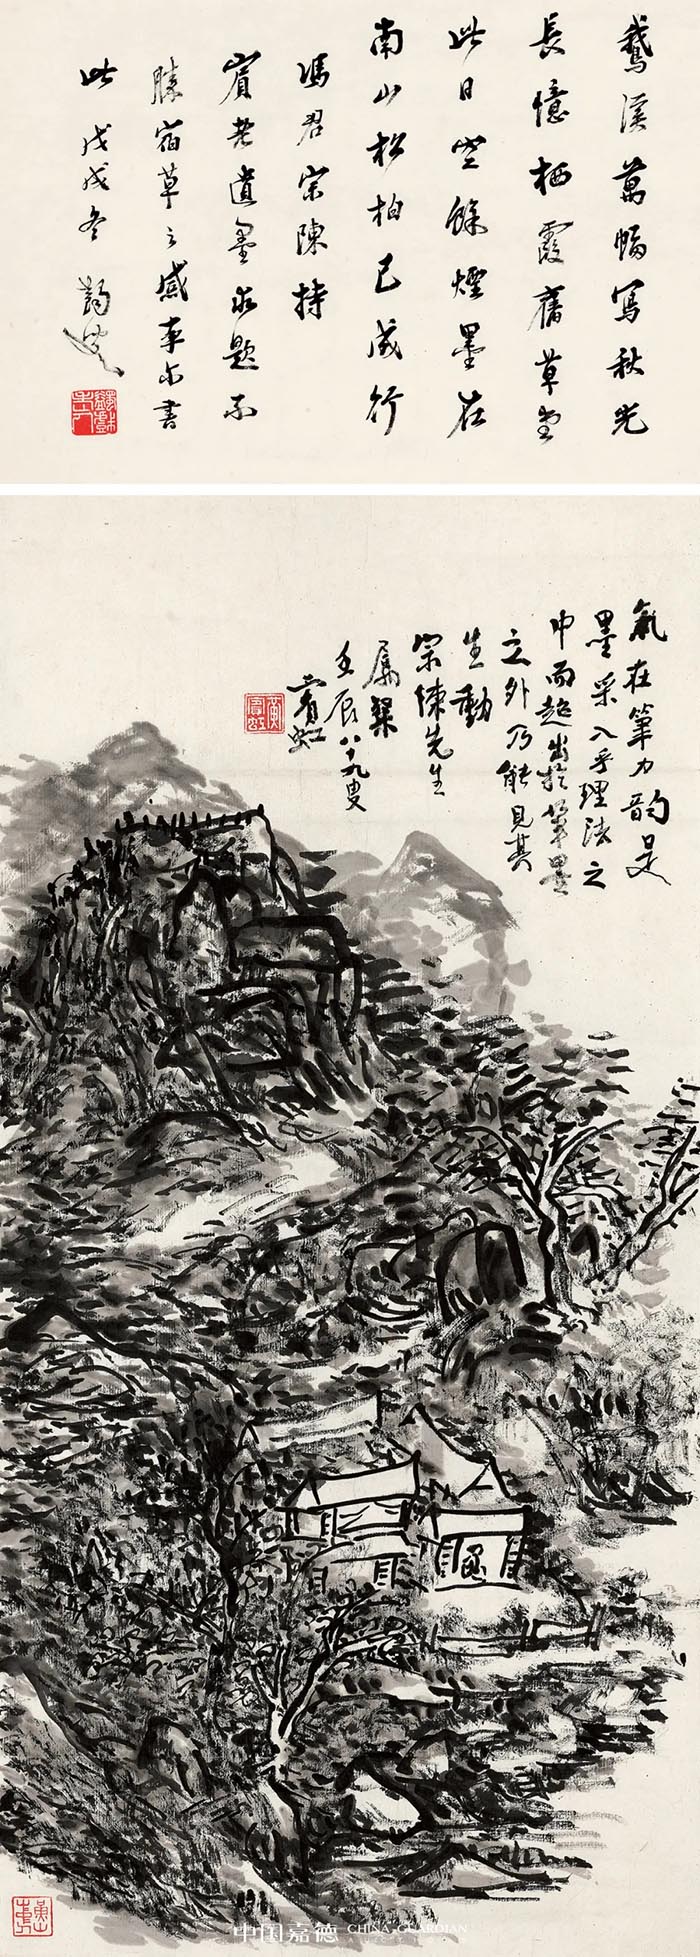 鵝溪萬幅寫秋光
長憶栖霞舊草堂
此日空餘煙墨在
南山松柏已成行
馮君宗陳持
賓老遺墨求題不
勝宿草之感率尔書
此戊戌冬 蠲叟
蠲戲老人
氣在筆力韵是
墨采入乎理法之
中而超出於筆墨
之外乃能見其
生動
宗陳先生
屬粲
壬辰八十九叟
賓虹
黃賓虹
中国嘉德 CHINA GUARDIAN
AUCTIONS